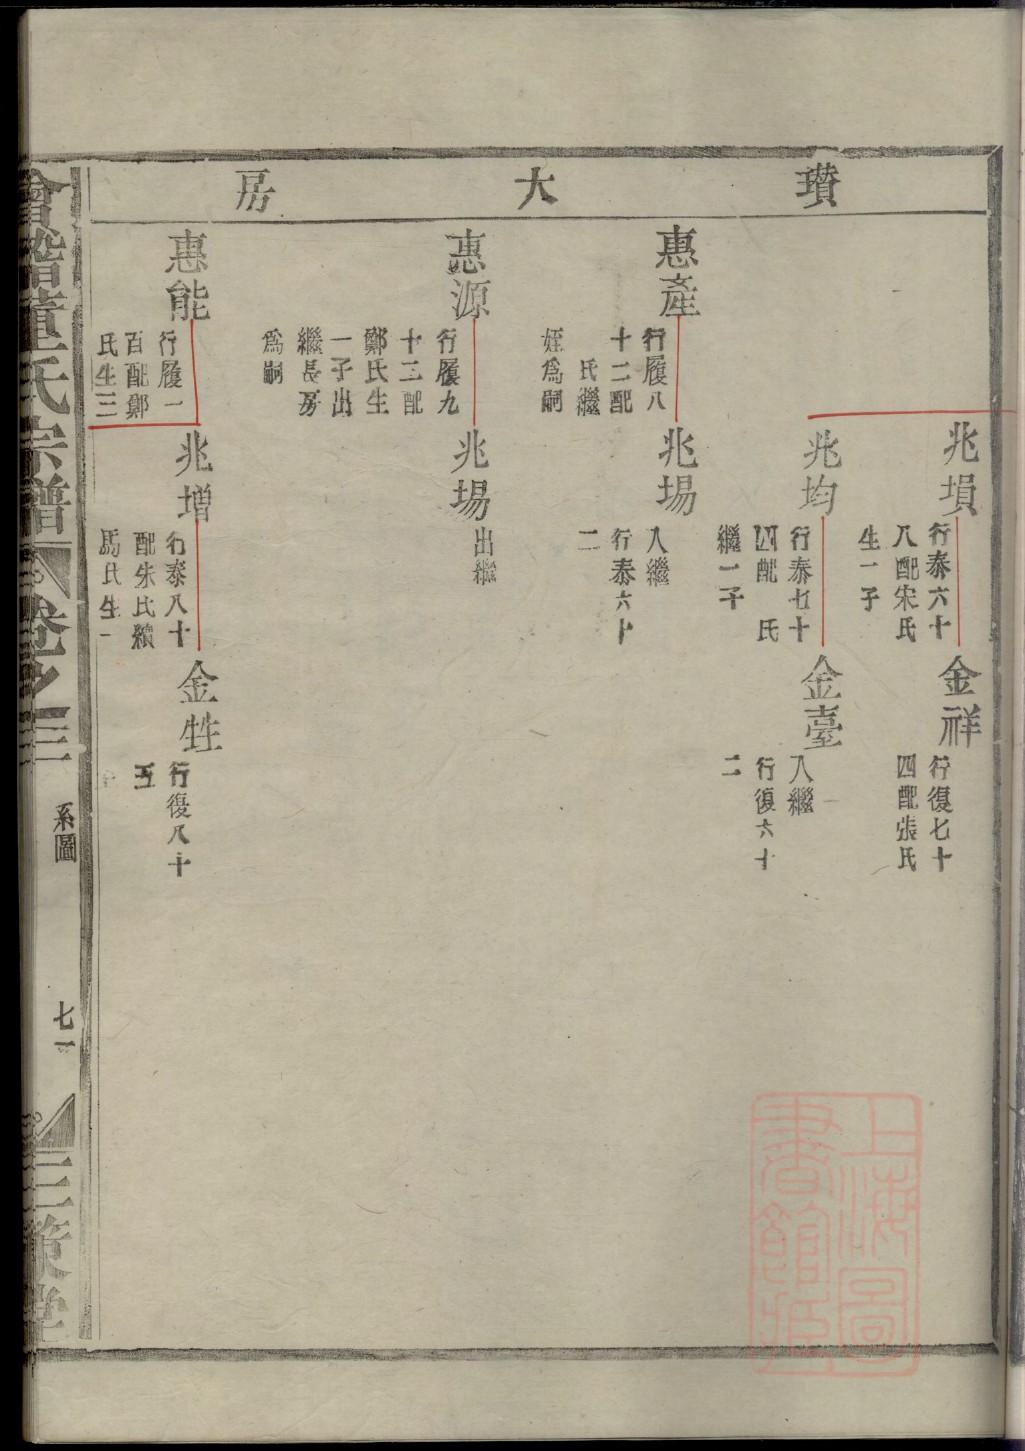 瓚大房
兆塤
行泰六十
八配宋氏
生一子
金祥
行復七十
四配張氏
兆均
行泰七十
四配 氏
繼一子
金臺
入繼
行復六十
二
惠產
行履八
十二配
氏繼
姪為嗣
兆場
入繼
行泰六十
二
惠源
行履九
十三配
鄭氏生
一子出
繼長房
為嗣
兆場
出繼
惠能
行履一
百配鄭
氏生三
兆增
行泰八十
配朱氏續
馬氏生一
金甡
行復八十
五
會稽董氏宗譜
卷之三
系圖
七一
三策堂
上海圖
書館藏